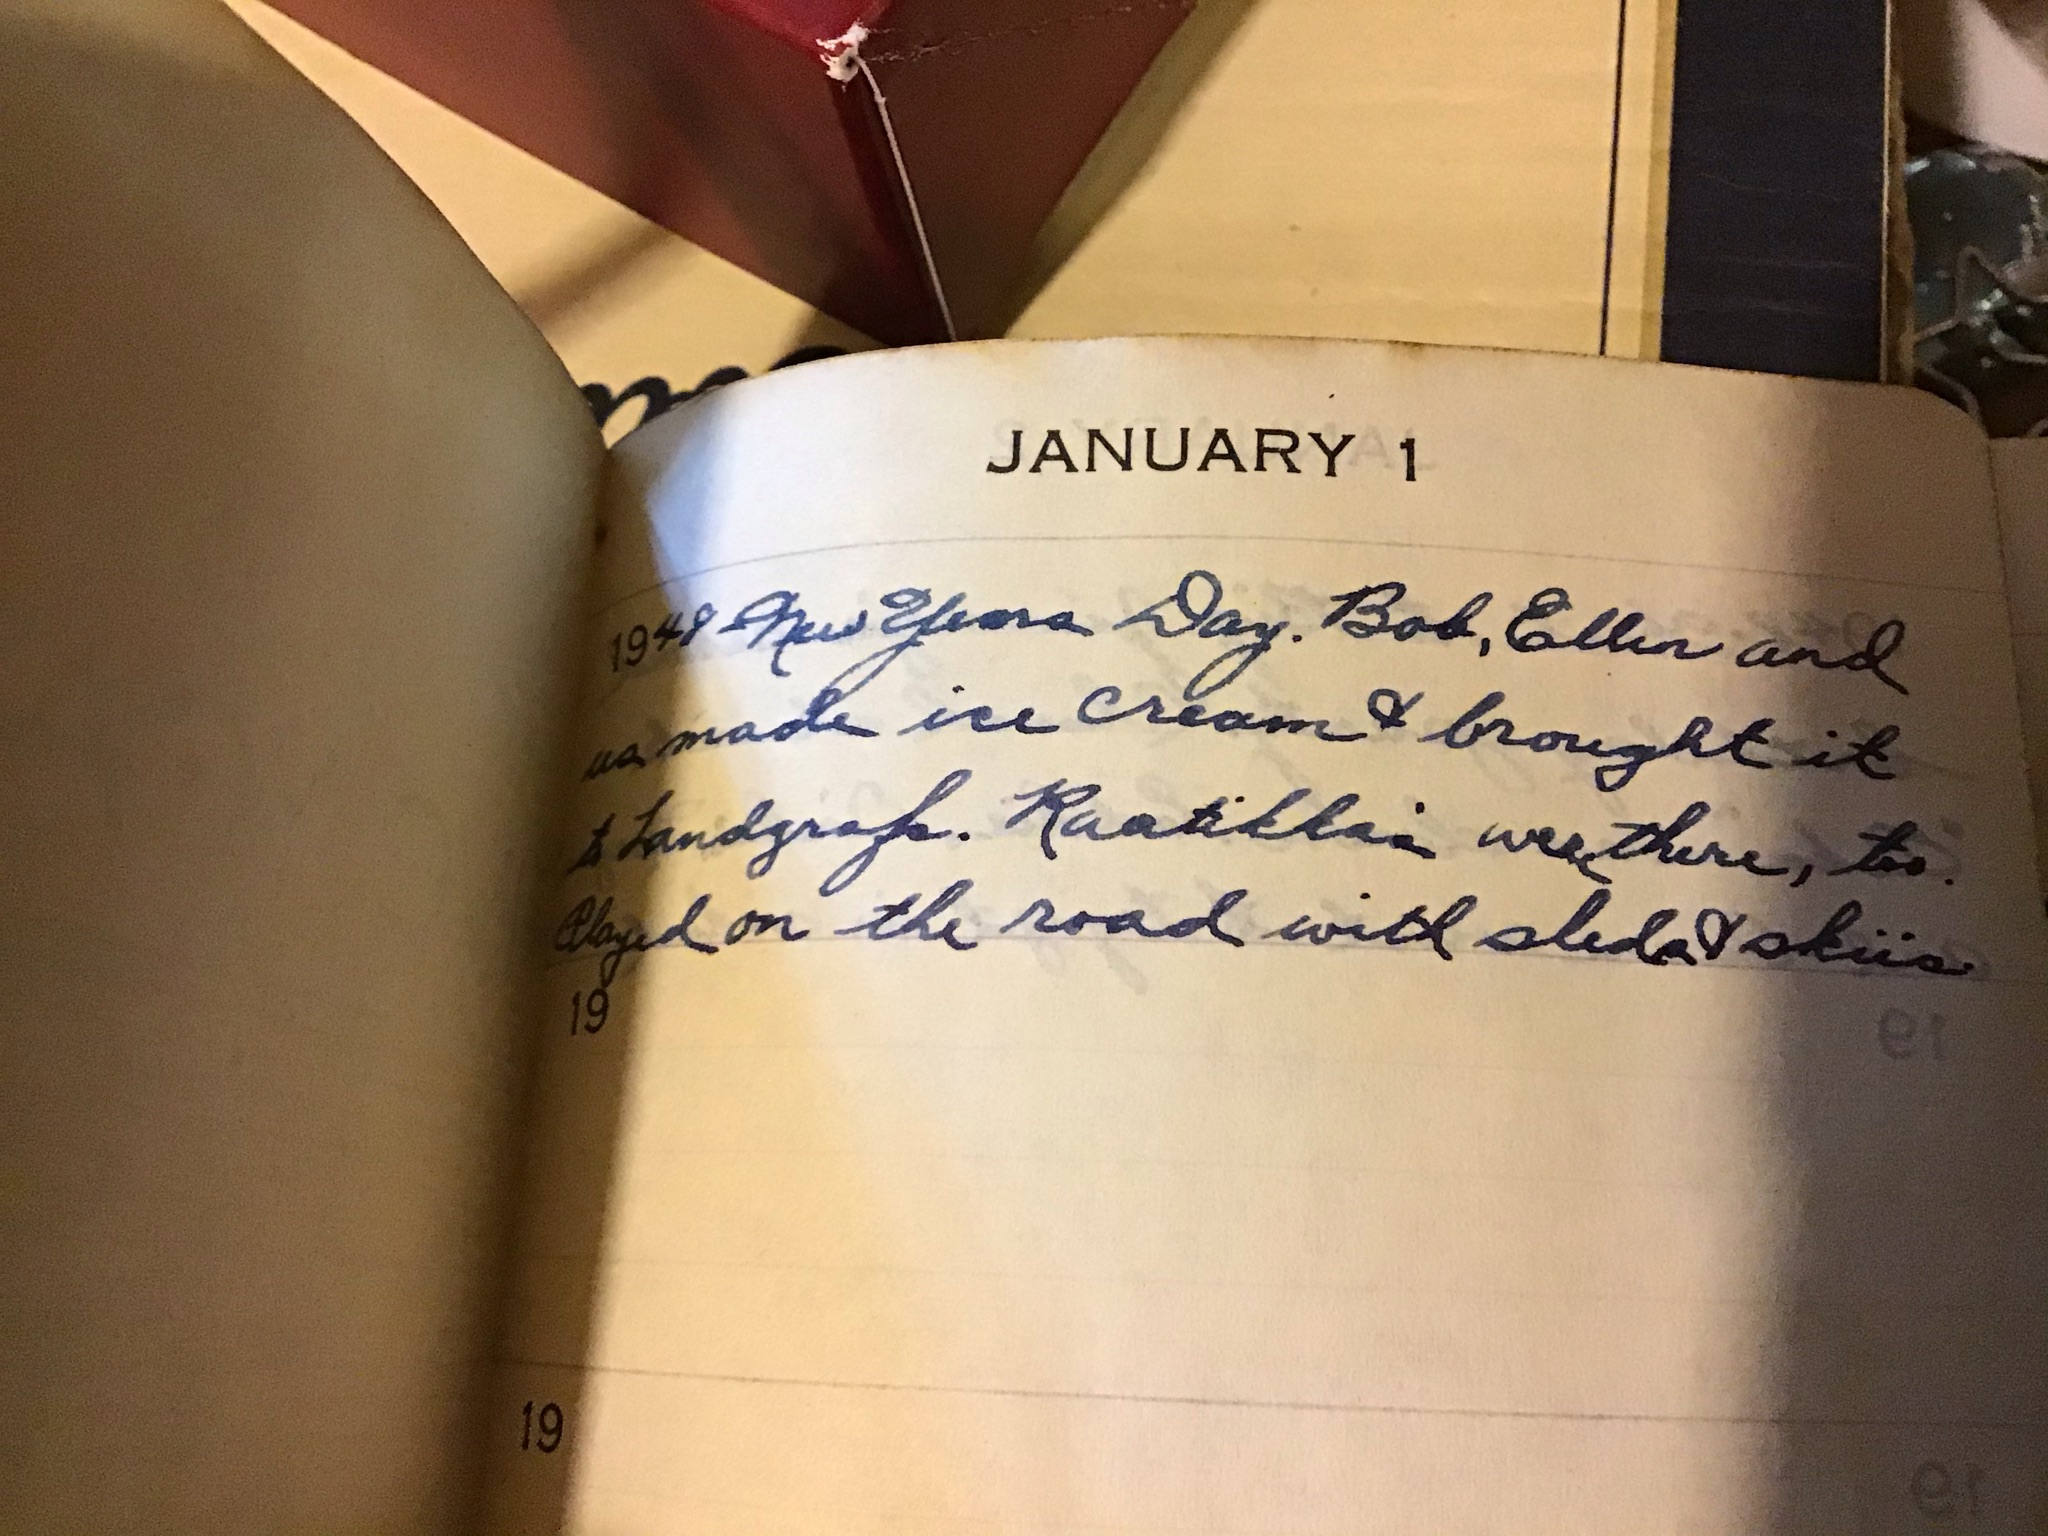 JANUARY 1
1948 New Years Day. Bob, Ellen and
us made ice cream & brought it
to Landgrafs. Raatikkais were there, too.
Played on the road with sleds & skiis
19
19